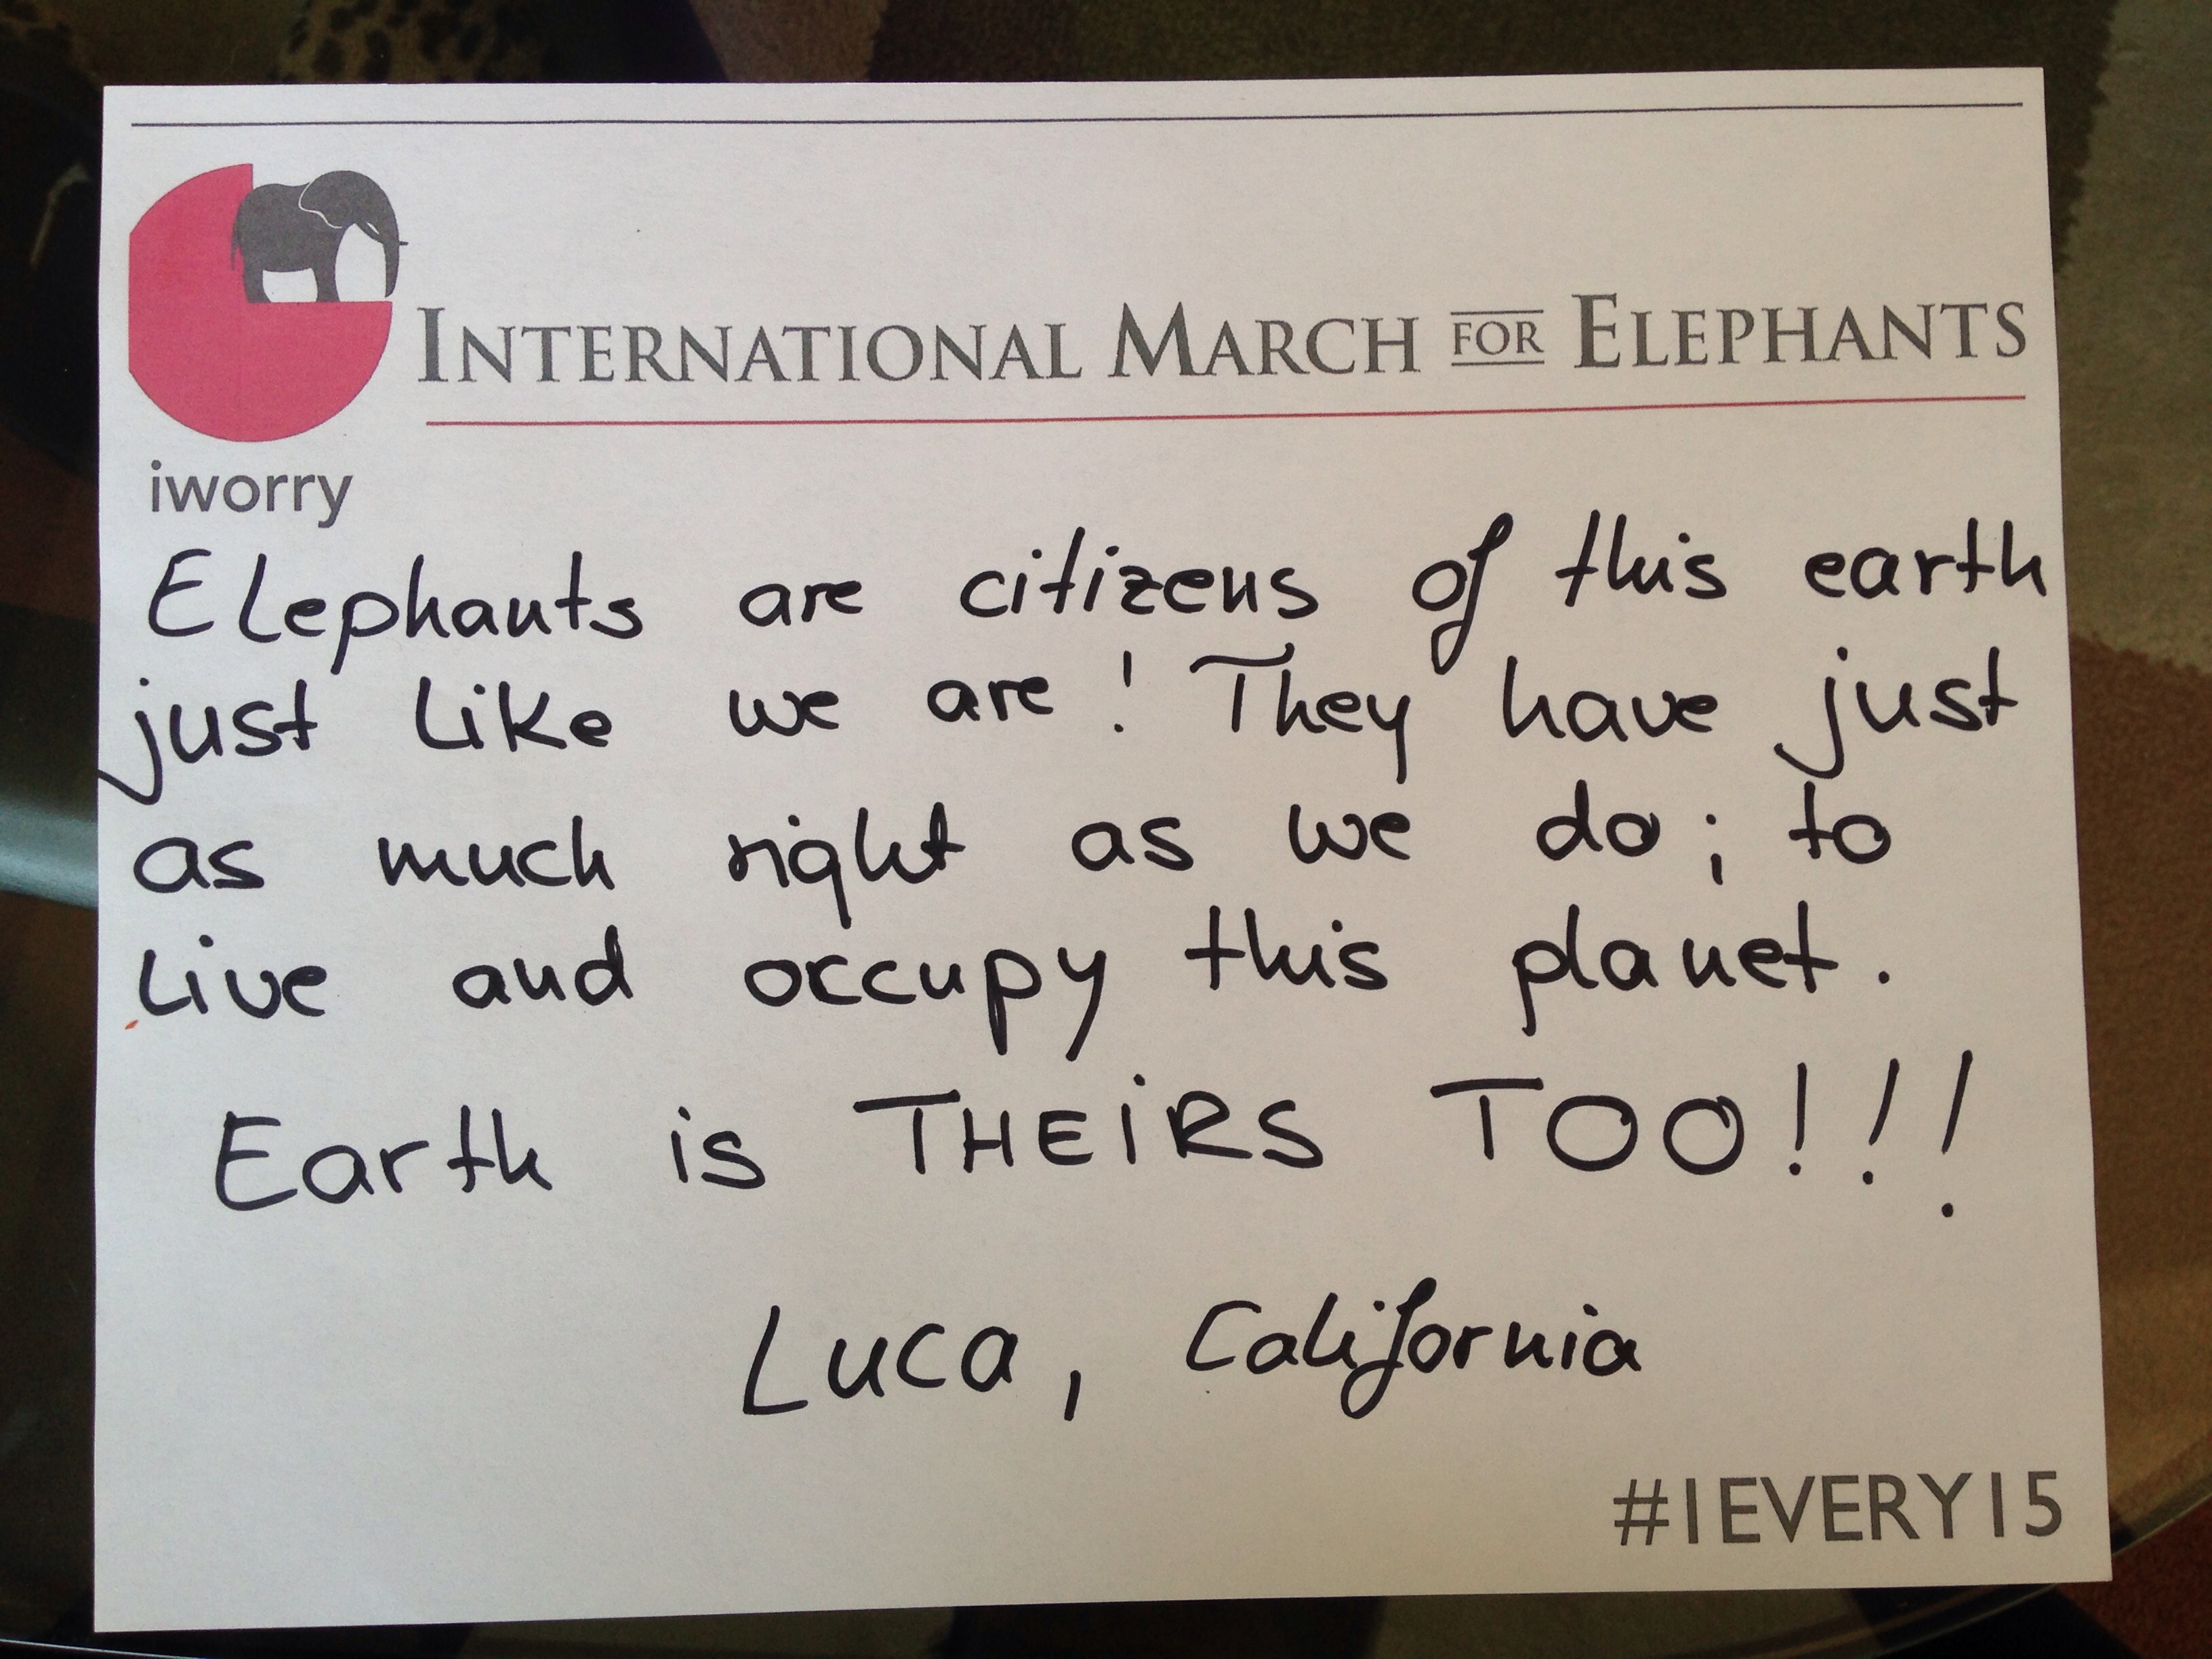 INTERNATIONAL MARCH FOR ELEPHANTS
iworry
Elephants are citizens of this earth
just like we are! They have just
as much right as we do; to
live and occupy this planet.
Earth is THEiRS TOO!!!
Luca, California
#1EVERY15